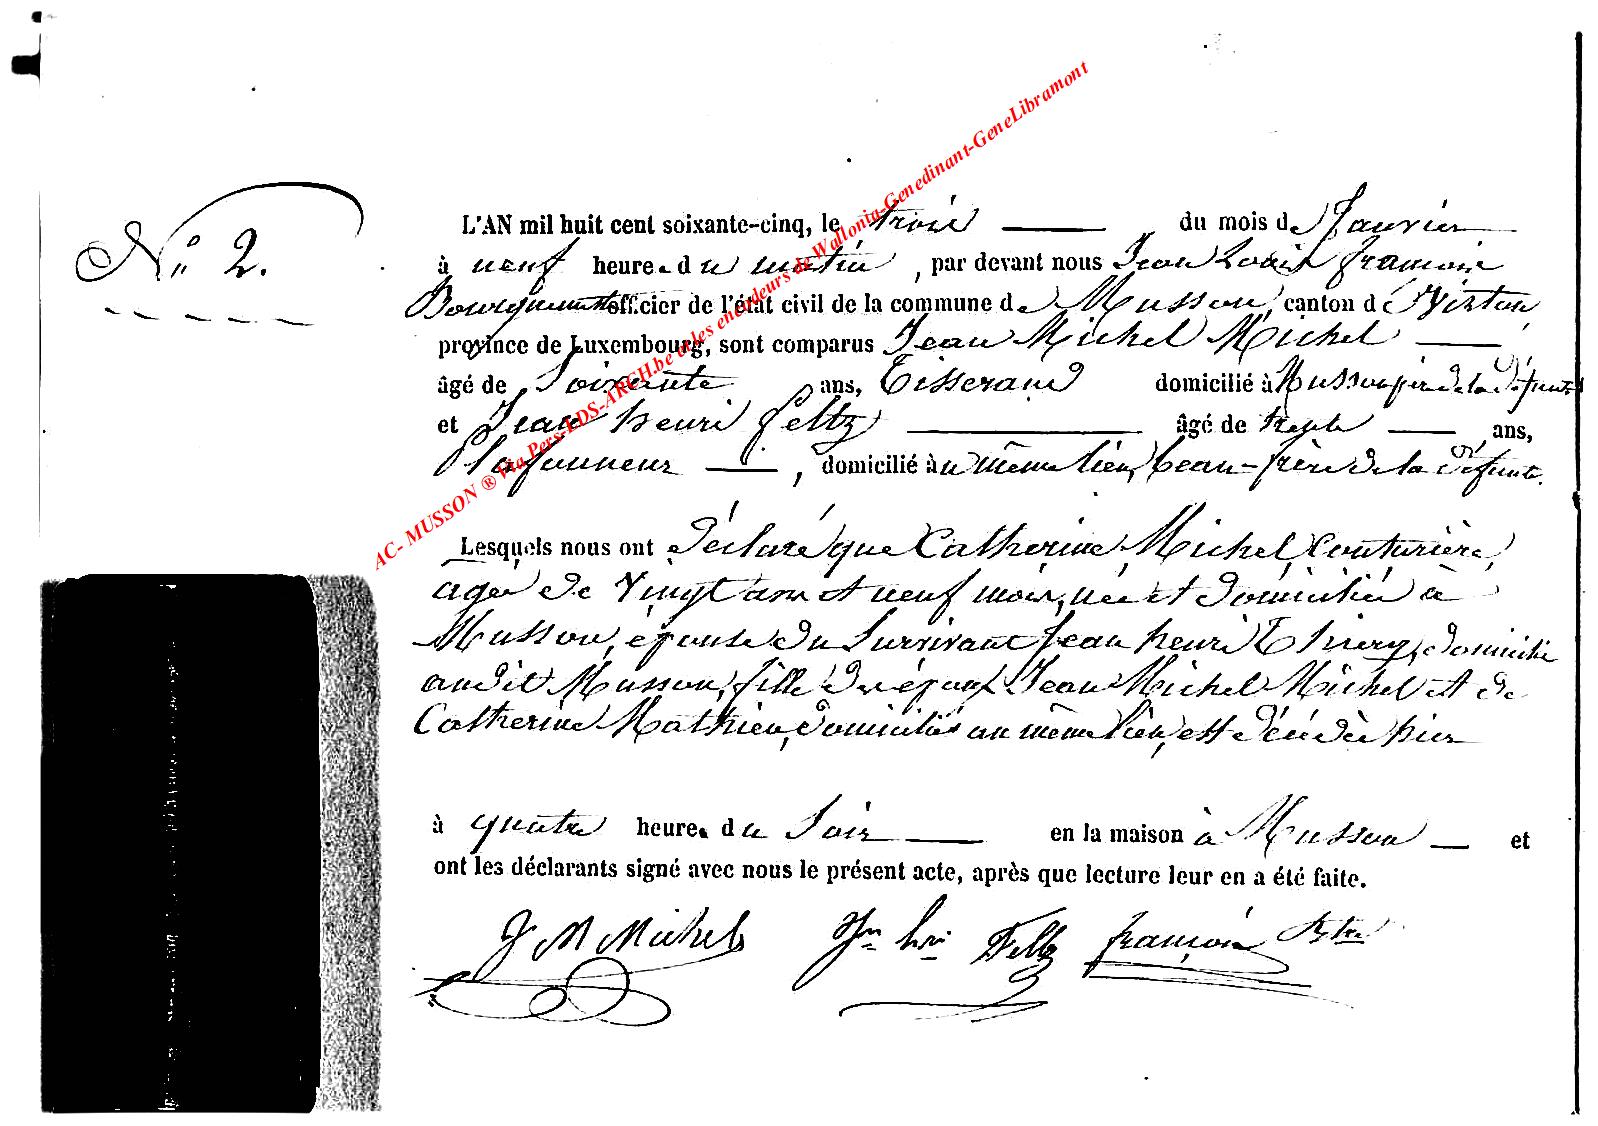 AC- MUSSON ® Via Pers-LDS-ARCH.be et les encodeurs de Wallonia-Genedinant-GeneLibramont
N° 2.
L'AN mil huit cent soixante-cinq, le trois du mois de Janvier
à neuf heures du matin, par devant nous Jean Louis François
officier de l'état civil de la commune de Musson, canton de Virton,
province de Luxembourg, sont comparus Jean Michel Michel
âgé de Soixante ans, Tisserand domicilié à Musson père de la défunte
et Jean henri feltz âgé de trente ans,
Plafonneur, domicilié au même lieu, beau-frère de la défunte.
Lesquels nous ont déclaré que Catherine Michel, Couturière,
agée de Vingt ans et neuf mois, née et domiciliée à
Musson, épouse du Survivant Jean henri Thiery, domicilié
audit Musson, fille des époux Jean Michel Michel et de
Catherine Mathieu, domiciliés au même lieu, est décédée hier
à quatre heures du Soir en la maison à Musson et
ont les déclarants signé avec nous le présent acte, après que lecture leur en a été faite.
J M Michel Jn hri Feltz françois